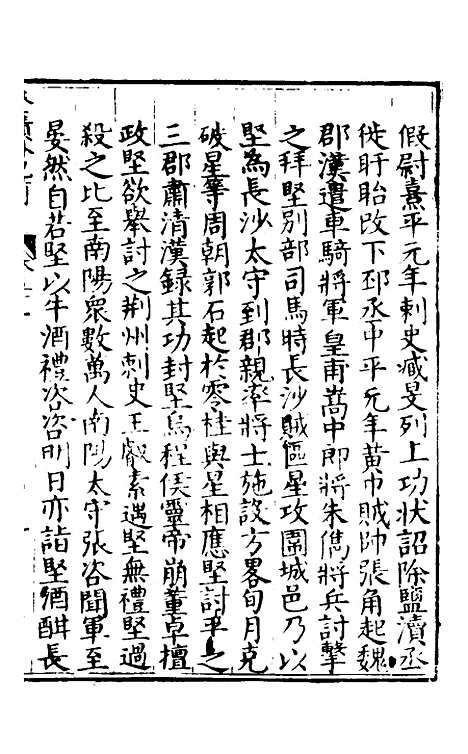 假尉熹平元年刺史臧旻列上功狀詔除鹽瀆丞
徙盱眙改下邳丞中平元年黃巾賊帥張角起魏
郡漢遣車騎將軍皇甫嵩中郎將朱儁將兵討擊
之拜堅別部司馬時長沙賊區星攻圍城邑乃以
堅為長沙太守到郡親率將士施設方畧旬月克
破星等周朝郭石起於零桂與星相應堅討平之
三郡肅清漢録其功封堅烏程侯靈帝崩董卓擅
政堅欲舉討之荆州刺史王叡素遇堅無禮堅過
殺之比至南陽衆數萬人南陽太守張咨聞軍至
晏然自若堅以牛酒禮咨咨明日亦詣堅酒酣長